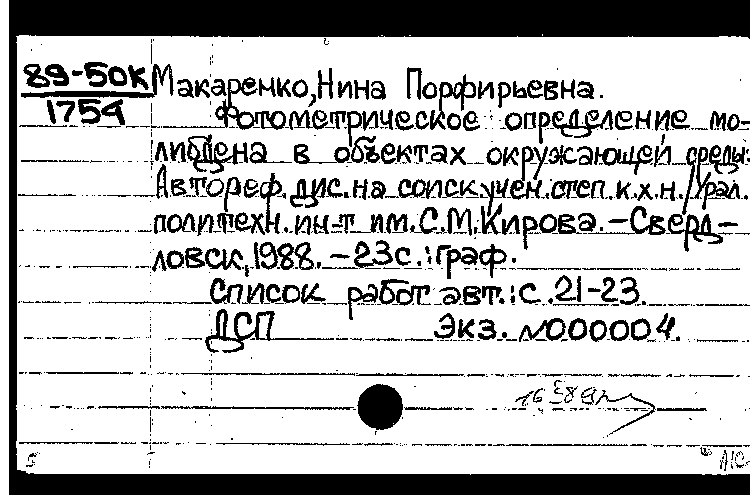 89-50К Макаренко, Нина Порфирьевна.
1754
Фотометрическое определение мо-
либдена в объектах окружающей среды:
Автореф. дис. на соиск. учен. степ. к.х.н. / Урал.
политехн. ин-т им. С.М. Кирова. – Сверд-
ловск, 1988. – 23 с.: граф.
Список работ авт.: с. 21-23.
ДСП Экз. N000004.